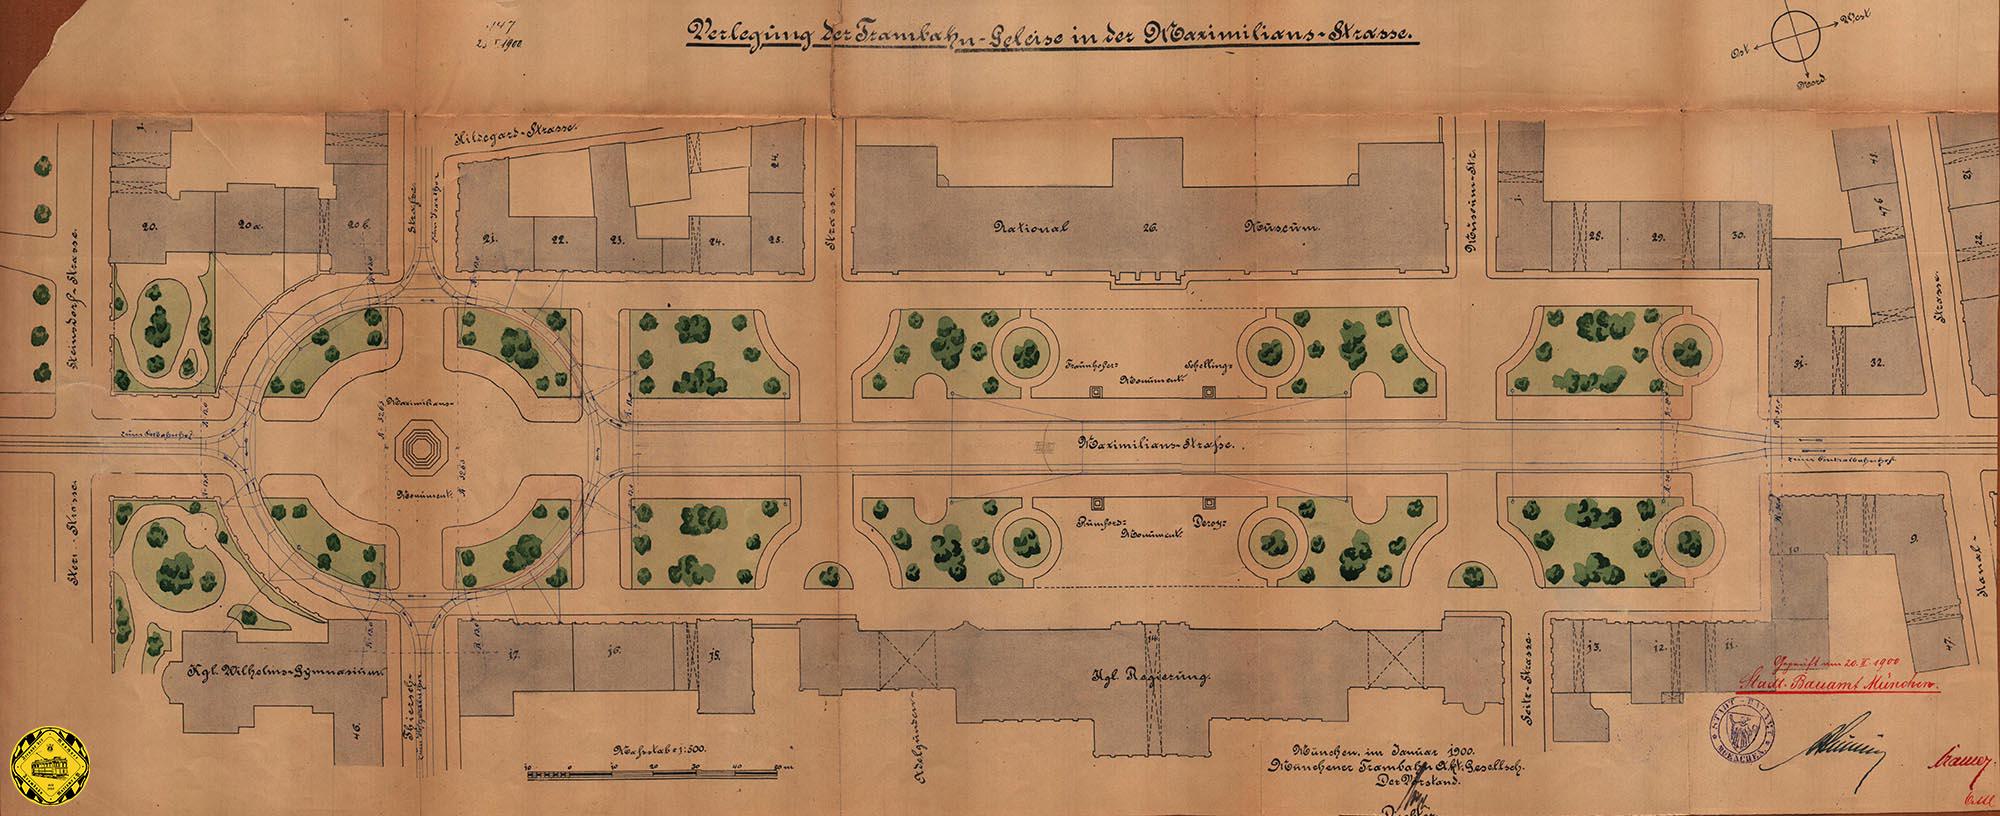 Verlegung der Trambahn-Geleise in der Maximilians-Strasse.
147
1900
West
Ost
Nord
Hildegard-Strasse.
Strasse
zum Isarthor
Steinsdorf-Strasse.
20.
20a.
20b.
21.
22.
23.
24.
24.
25.
Strasse.
National 26. Museum.
Museum-Str.
1.
28.
29.
30.
31.
32.
47b
22.
Strasse.
Maximilians-
Monument.
R=12,0
Fraunhofer-
Monument.
Schelling-
Maximilians-Straße.
zum Centralbahnhof
Rumford-
Monument.
Deroy-
Kgl. Wilhelms-Gymnasium.
46.
Thiersch-
17.
16.
15.
14.
Kgl. Regierung.
Adelgunden
Seitz-Strasse.
13.
12.
11.
10
9.
47.
Kanal-
Geprüft am 20. II. 1900
Stadt-Bauamt München.
STADT-BAUAMT
MUENCHEN
Massstab=1:500.
10 0 10 20 30 40 50 m
München, im Januar 1900.
Münchener Trambahn Akt. Gesellsch.
Der Vorstand.